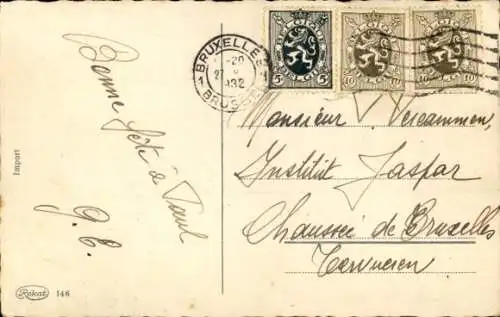 Bonne
fête à Paul
g. C.
Import
Rekat 146
BRUXELLES
1 -20 1
27
1932
BRUSSEL
BELGIQUE
BELGIË
5 5
BELGIQUE
BELGIË
10 10
BELGIQUE
BELGIË
10 10
Monsieur V. Vercammen,
Institut Jaspar
Chaussée de Bruxelles
Tervueren